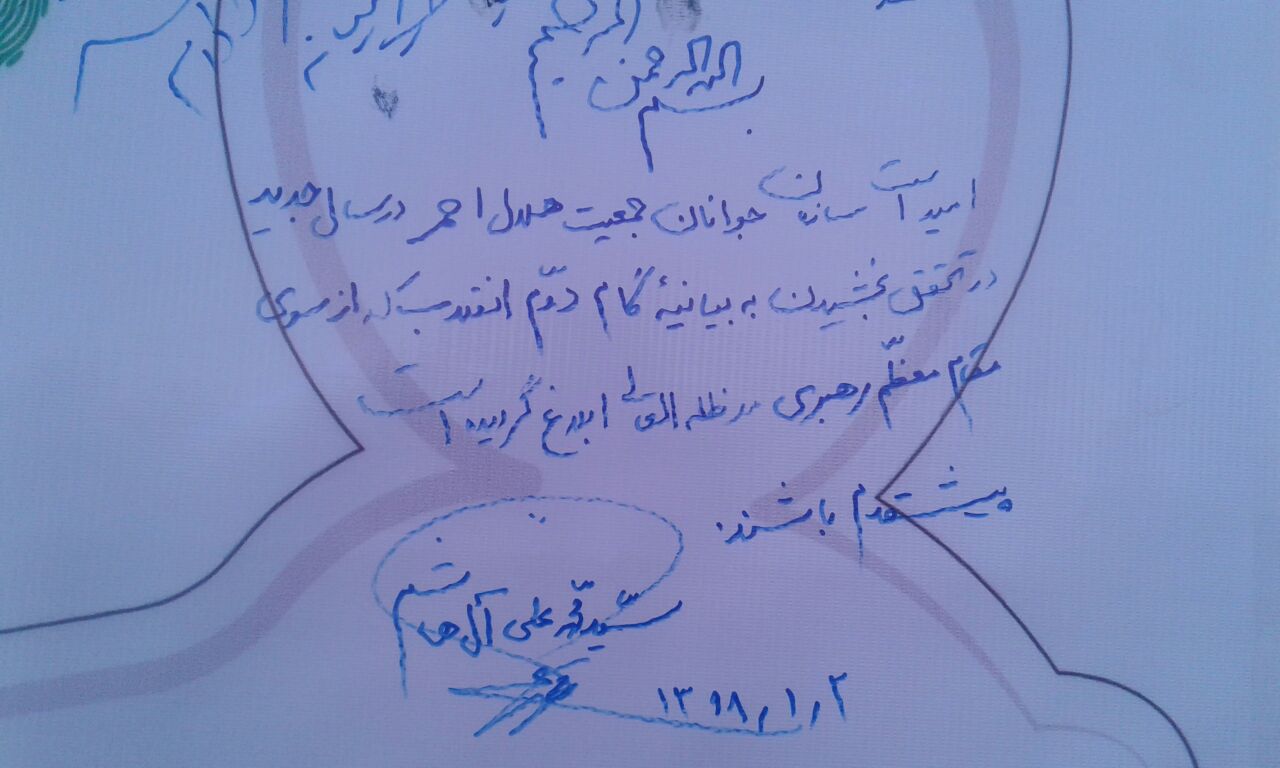 بسم الله الرحمن الرحیم
امید است سازمان جوانان جمعیت هلال احمر در سال جدید
در تحقق بخشیدن به بیانیهٔ گام دوّم انقلاب که از سوی
مقام معظّم رهبری مدظله العالی ابلاغ گردیده است
پیشقدم باشند.
سیّد محمّد علی آل هاشم
۱۳۹۸/۱/۲